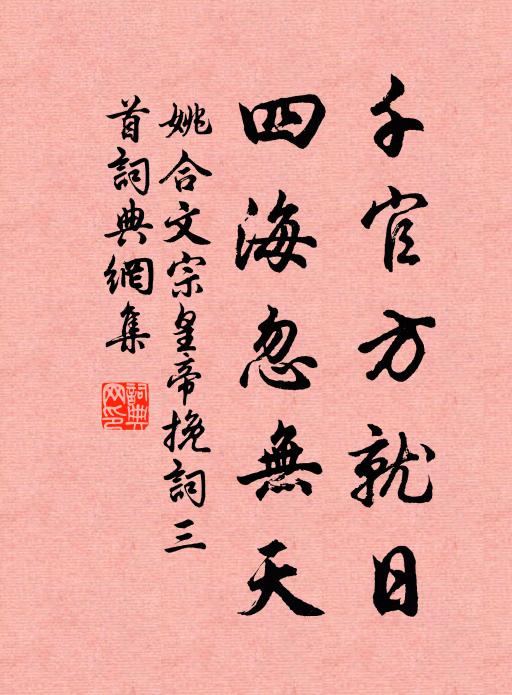 千官方就日
四海忽無天
姚合文宗皇帝挽詞三
首詞典網集
詞典網印